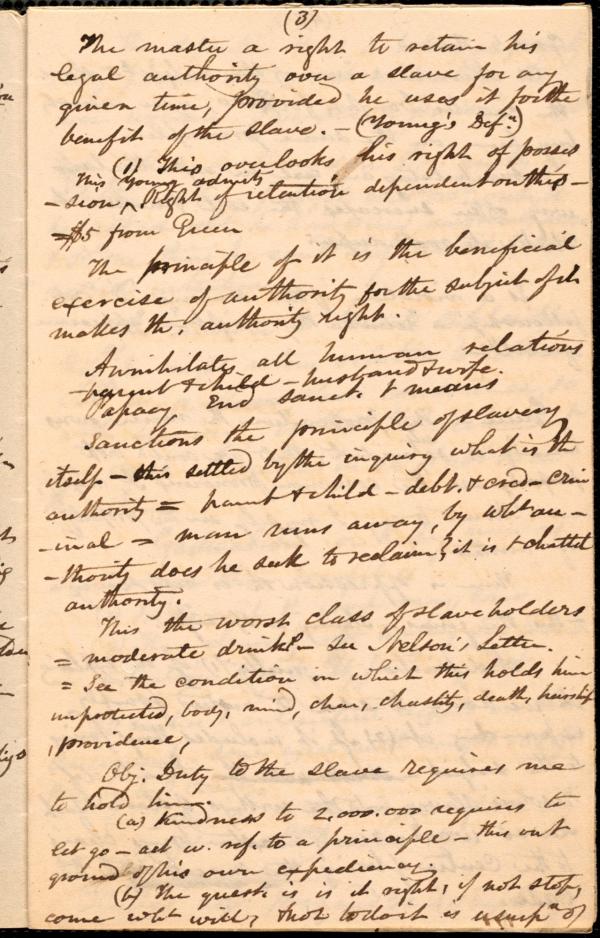 (3)
The master a right to retain his
legal authority over a slave for any
given time, provided he uses it for the
benefit of the slave. – (Young's Defn.)
(1) This overlooks his right of posses
This Young admits
-sion ^ Right of retention dependent on this –
= $5 from Green
The principle of it is the beneficial
exercise of authority for the subject of it
makes the authority right.
Annihilates all human relations
– parent & child – husband & wife.
Papacy End sanct. & means
Sanctions the principle of slavery
itself – this settled by the inquiry what is the
authority = parent & child – debt. & cred – crim
-inal = man runs away, by wht au-
-thority does he seek to reclaim? it is & chattel
authority.
This the worst class of slaveholders
= moderate drinkg – See Nelson's Letter.
= See the condition in which this holds him
unprotected, body, mind, char, chastity, death, heirship
, providence,
Obj. Duty to the slave requires me
to hold him.
(a) Kindness to 2,000,000 requires to
let go – act w. ref. to a principle – this out
ground of his own expediency.
(b) The quest. is is it right, if not stop,
come wht will, & not to do it is usurpn of